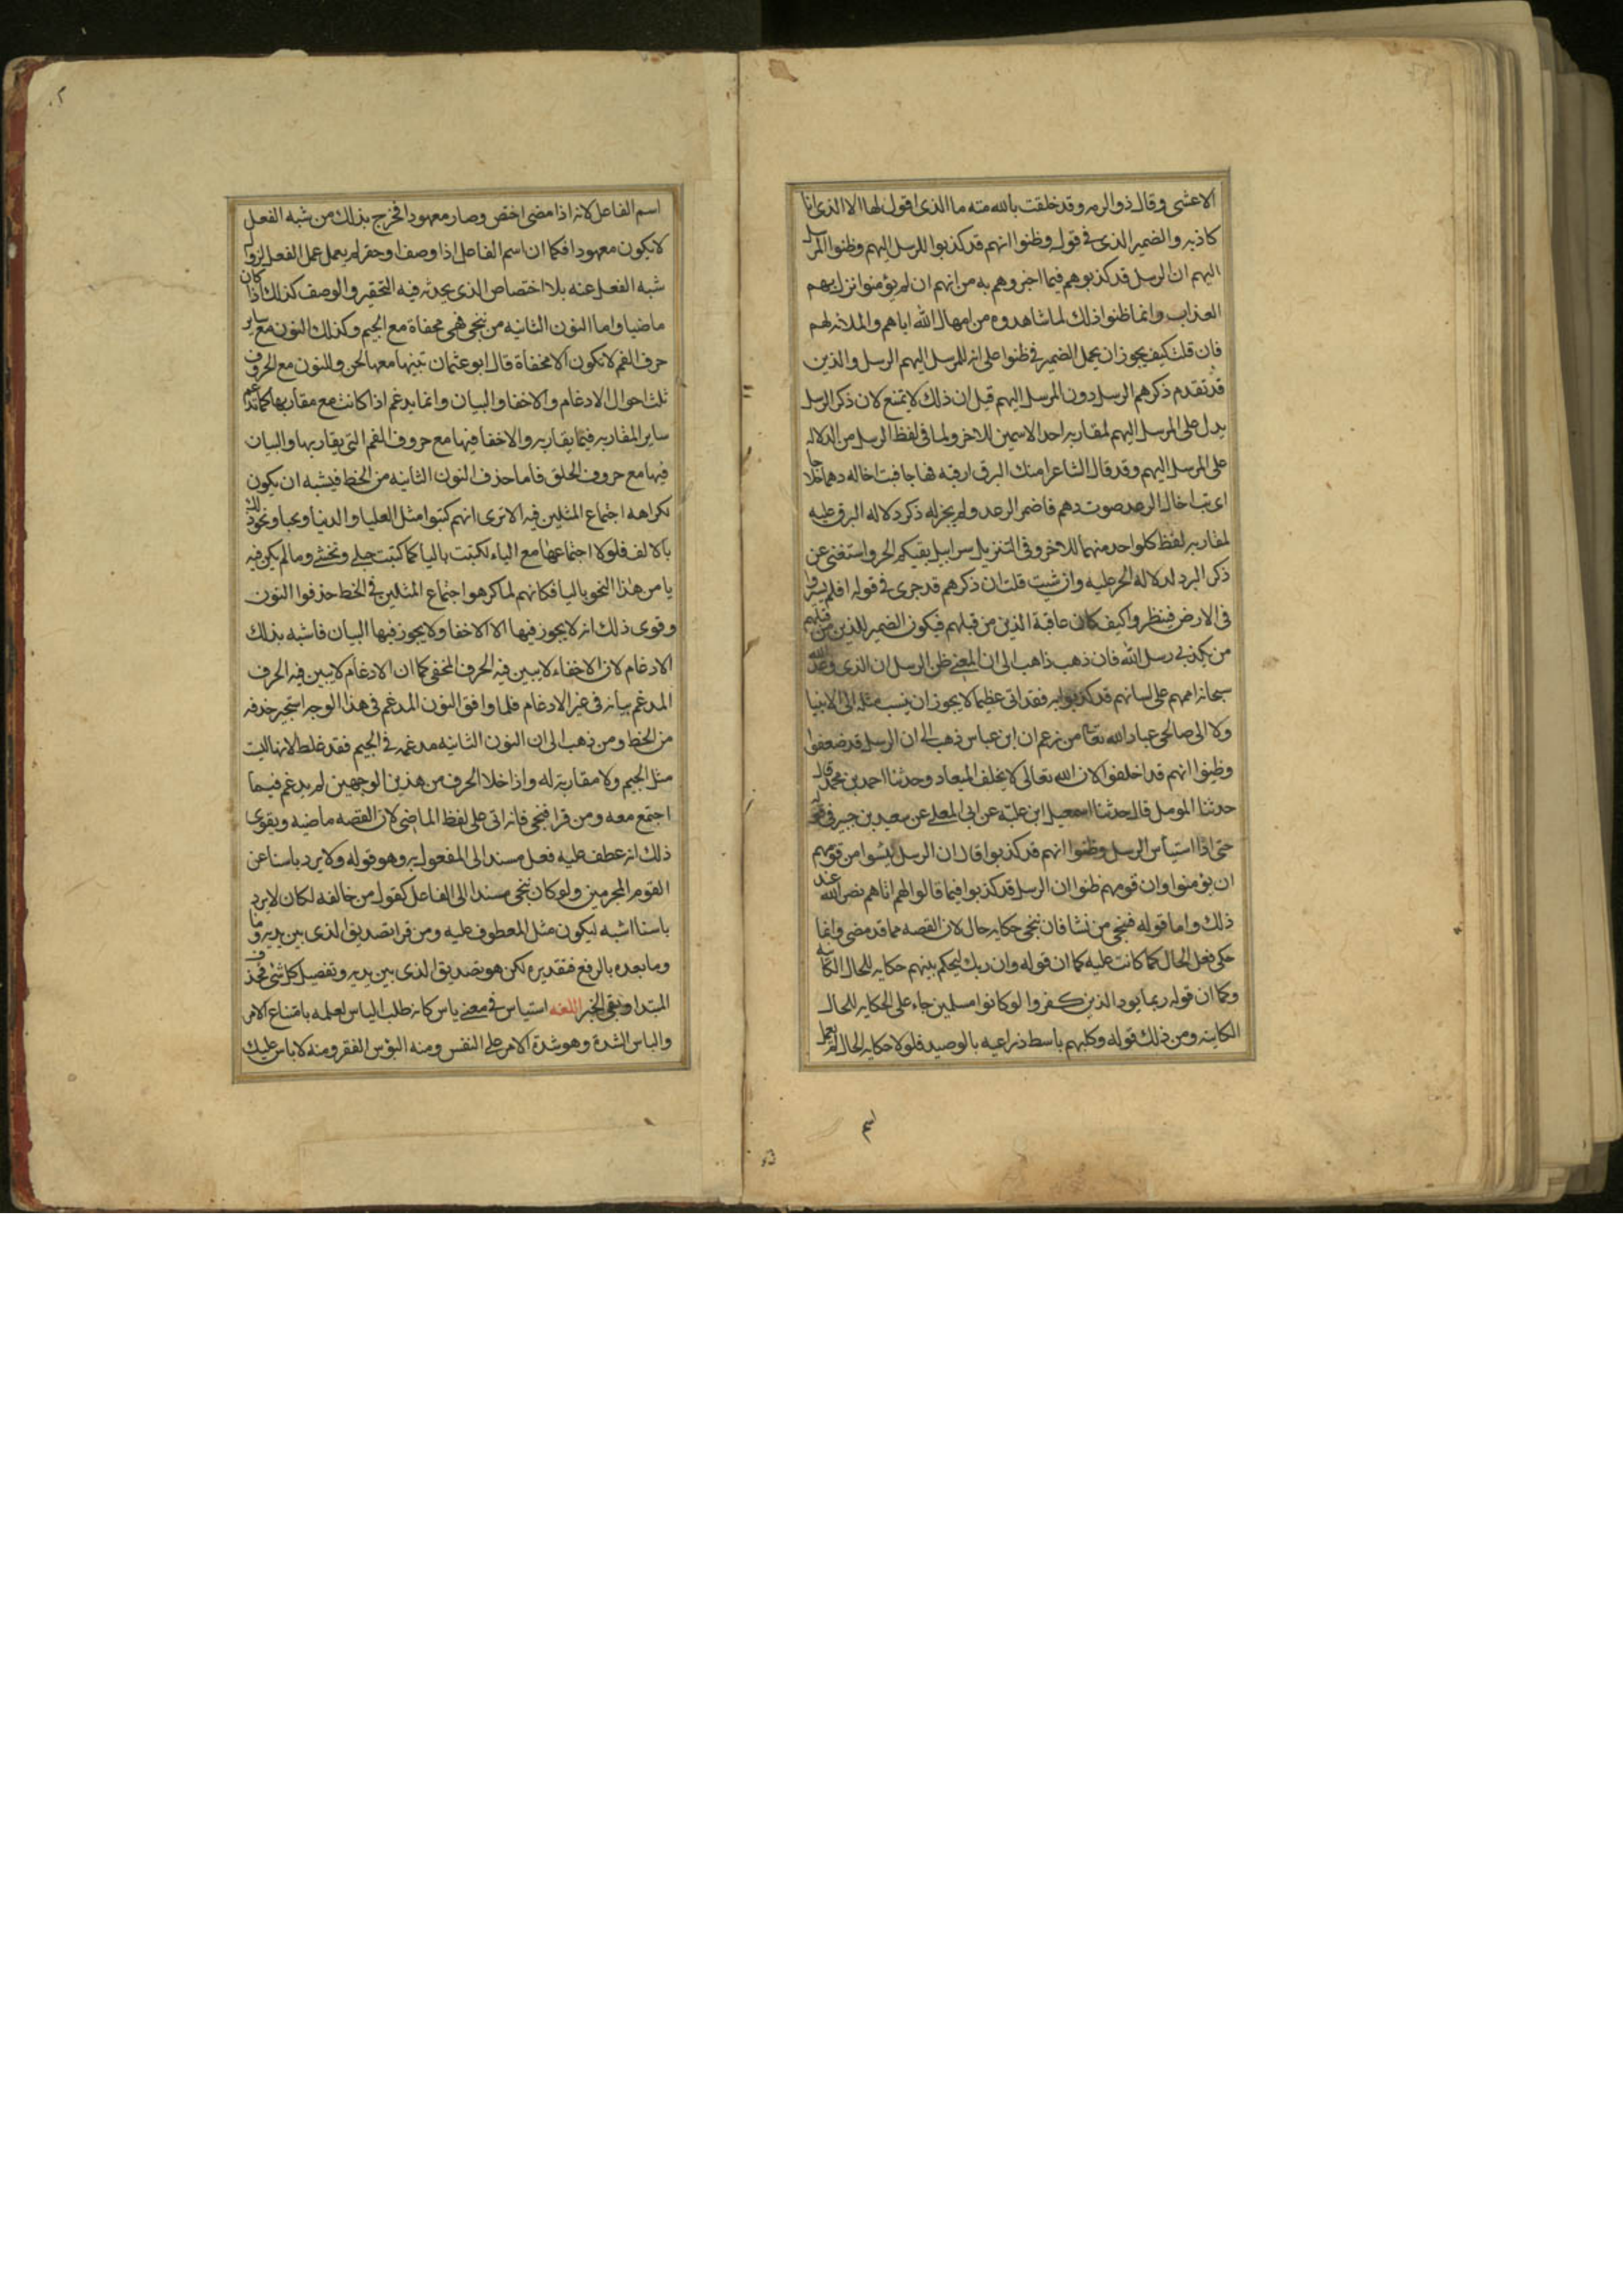 الاعشى وقال ذو الرمه وقد خلقت بالله منه ما الذى اقول لها الا الذى انا
كاذبه والضمير الذى فى قوله وظنوا انهم قد كذبوا للمرسل اليهم وظنوا المرسل
اليهم ان الرسل قد كذبوهم فيما اخبروهم به من انهم ان لم يؤمنوا نزل بهم
العذاب وانما ظنوا ذلك لما شاهدوه من امهال الله اياهم والملائه لهم
فان قلت كيف يجوز ان يحمل الضمير فى ظنوا على انه للمرسل اليهم الرسل والذين
قد تقدم ذكرهم الرسل دون المرسل اليهم قيل ان ذلك لا يمتنع لان ذكر الرسل
يدل على المرسل اليهم لمقاربه احد الاسمين للاخر ولما فى لفظ الرسل من الدلاله
على المرسل اليهم وقد قال الشاعر امنك البرق ارقبه فهاجا فبت اخاله دهما خلاجا
اى بت اخال الرعد صوت دهم فاضمر الرعد ولم يجز له ذكر دلاله البرق عليه
لمقاربه لفظ كل واحد منهما للاخر وفى التنزيل سرابيل تقيكم الحر واستغنى عن
ذكر البرد لدلاله الحر عليه وان شيت قلت ان ذكرهم قد جرى فى قوله افلم يسيروا
فى الارض فينظروا كيف كان عاقبة الذين من قبلهم فيكون الضمير للذين من قبلهم
من مكذبى رسل الله فان ذهب ذاهب الى ان المعنى ظن الرسل ان الذى وعد الله
سبحانه اممهم على لسانهم قد كذبوا به فقد اتى عظيما لا يجوز ان ينسب مثله الى الانبيا
ولا الى صالحى عباد الله تعالى من زعم ان ابن عباس ذهب الى ان الرسل قد ضعفوا
وظنوا انهم قد اخلفوا لان الله تعالى لا يخلف الميعاد وحدثنا احمد بن محمد قال
حدثنا المومل قال حدثنا اسمعيل ابن عليه عن ابى المعلى عن سعيد بن جبير فى قوله
حتى اذا استيأس الرسل وظنوا انهم قد كذبوا قال ان الرسل يئسوا من قومهم
ان يؤمنوا وان قومهم ظنوا ان الرسل قد كذبوا فيما قالوا لهم اتاهم نصر الله عند
ذلك واما قوله فننجى من نشا فان ننجى حكايه حال لان القصه مما قد مضى وانما
حكى فعل الحال كما كانت عليه كما ان قوله وان ربك ليحكم بينهم حكايه للحال الكاينه
وكما ان قوله ربما يود الذين كفروا لو كانوا مسلمين جاء على الحكايه للحال
الكاينه ومن ذلك قوله وكلبهم باسط ذراعيه بالوصيد فلولا حكايه الحال لم يعمل
اسم
اسم الفاعل لانه اذا مضى اختص وصار معهودا فخرج بذلك من شبه الفعل
لا يكون معهودا فكما ان اسم الفاعل اذا وصف او حقر لم يعمل عمل الفعل لزوال
شبه الفعل عنه بلا اختصاص الذى يحدثه فيه التحقير والوصف كذلك اذا كان
ماضيا واما النون الثانيه من ننجى فهى مخفاة مع الجيم وكذلك النون مع ساير
حرف الفم لا تكون الا مخفاة قال ابو عثمان تبينها معها لحن وللنون مع الحروف
ثلث احوال الادغام والاخفا والبيان وانما يدغم اذا كانت مع مقاربها كما تدغم
ساير المقاربه فيما يقاربه والاخفا فيها مع حروف الفم التى يقاربها والبيان
فيها مع حروف الحلق فاما حذف النون الثانيه من الخط فيشبه ان يكون
لكراهه اجتماع المثلين فيه الا ترى انهم كتبوا مثل العليا والدنيا ويحيا ونحو ذلك
بالالف فلولا اجتماعها مع الياء لكتبت باليا كما كتبت حبلى وتخشى وما لم يكن فيه
يا من هذا النحو باليا فكانهم لما كرهوا اجتماع المثلين فى الخط حذفوا النون
وقوى ذلك انه لا يجوز فيها الا الاخفا ولا يجوز فيها البيان فاشبه بذلك
الادغام لان الاخفاء لا يبين فيه الحرف المخفى كما ان الادغام لا يبين فيه الحرف
المدغم بيانه فى غير الادغام فلما وافق النون المدغم فى هذا الوجه استجيز حذفه
من الخط ومن ذهب الى ان النون الثانيه مدغمه فى الجيم فقد غلط لانها ليست
مثل الجيم ولا مقاربة له واذا خلا الحرف من هذين الوجهين لم يدغم فيما
اجتمع معه ومن قرا فنجى فانه اتى على لفظ الماضى لان القصه ماضيه ويقوى
ذلك انه عطف عليه فعل مسند الى المفعول به وهو قوله ولا يرد باسنا عن
القوم المجرمين ولو كان ننجى مسندا الى الفاعل كقول من خالفه لكان لا يرد
باسنا اشبه ليكون مثل المعطوف عليه ومن قرا تصديق الذى بين يديه وما
وما بعده بالرفع فتقديره لكن هو تصديق الذى بين يديه وتفصيل كل شئ فحذف
المبتدا وبقى الخبر اللغه استياس فى معنى ياس كانه طلب الياس لعلمه بامتناع الامر
والباس الشدة وهو شدة الامر على النفس ومنه البؤس الفقر ومنه لا باس عليك